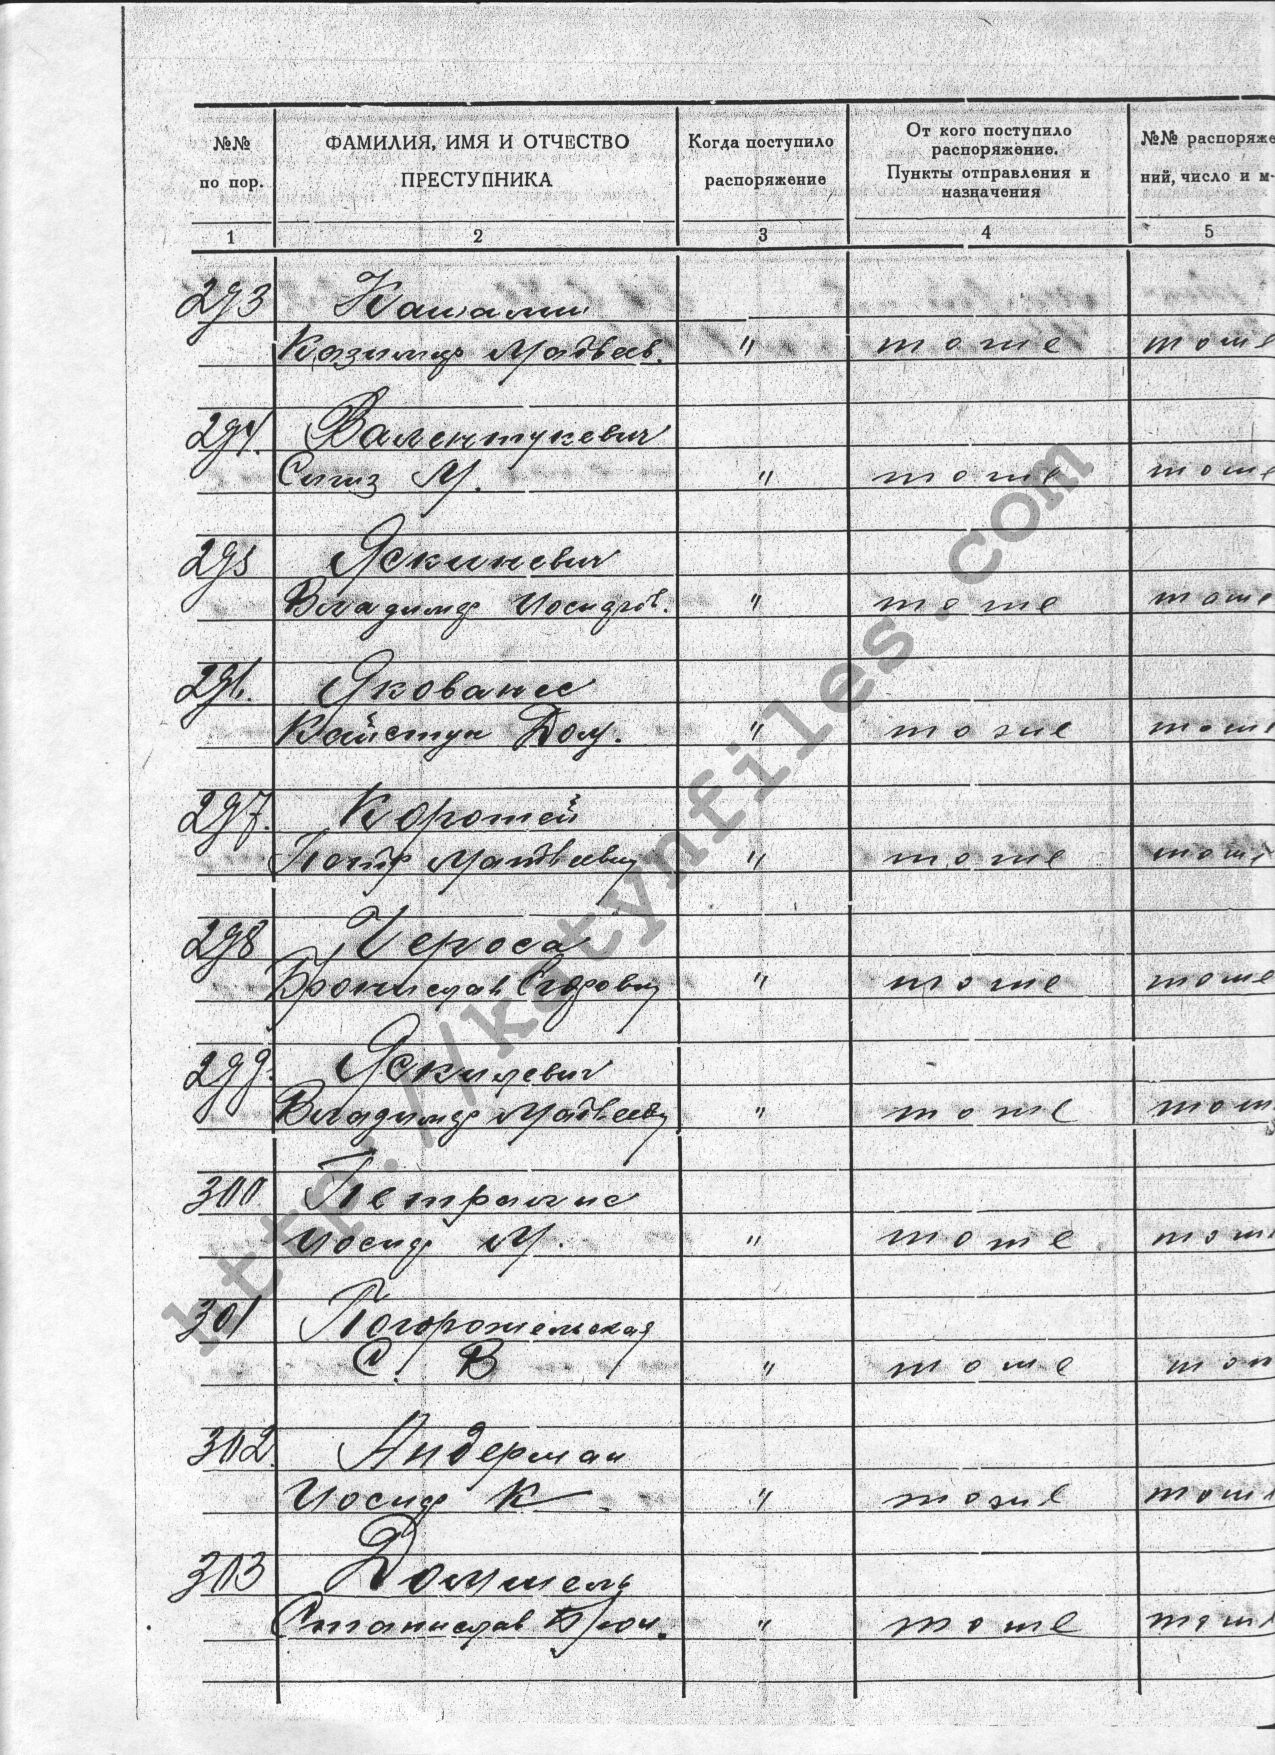 №№ по пор.
ФАМИЛИЯ, ИМЯ И ОТЧЕСТВО ПРЕСТУПНИКА
Когда поступило распоряжение
От кого поступило распоряжение. Пункты отправления и назначения
№№ распоряже
ний, число и м-
1 2 3 4 5
293
Казимир Матвеев. " тоже тоже
294. Валентукевич
М. " тоже тоже
295 Яскиневич
Владимир Иосифов. " тоже тоже
296. Якованес
Кейстут Дом. " тоже тоже
297. Коротей
Петр Матвеевич " тоже тоже
298
Бронислав " тоже тоже
299. Яскилевич
Владимир Матвеевич " тоже тоже
300
Иосиф М. " тоже тоже
301 Погоржельская
С. В " тоже тож
302. Андерман
Иосиф К. " тоже тоже
303
Станислав " тоже тоже
http://katynfiles.com